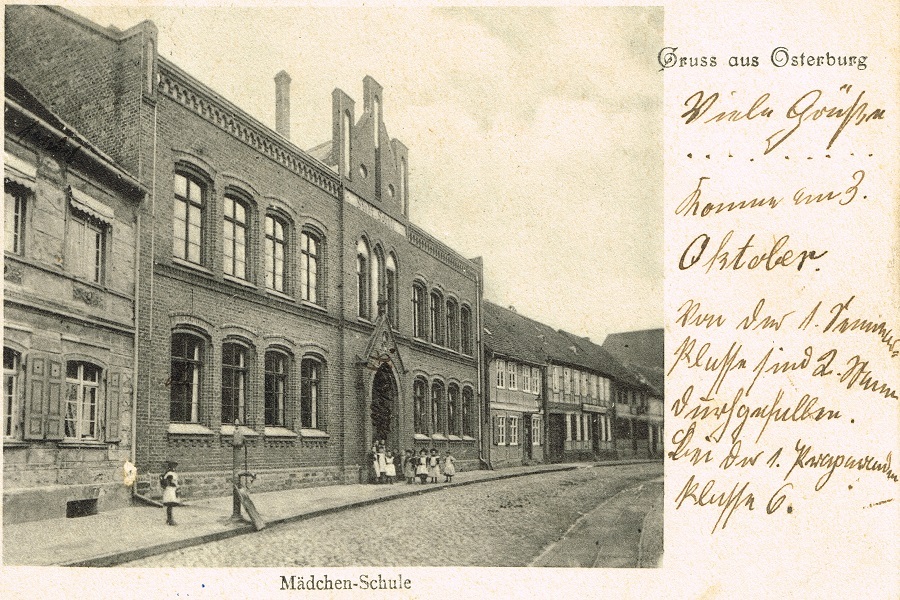 Gruss aus Osterburg
Viele Grüße
Komme am 3.
Oktober.
Von der 1. Seminar
Klasse sind 2. Mann
durchgefallen.
Bei der 1. Präparanden
Klasse 6.
Mädchen-Schule